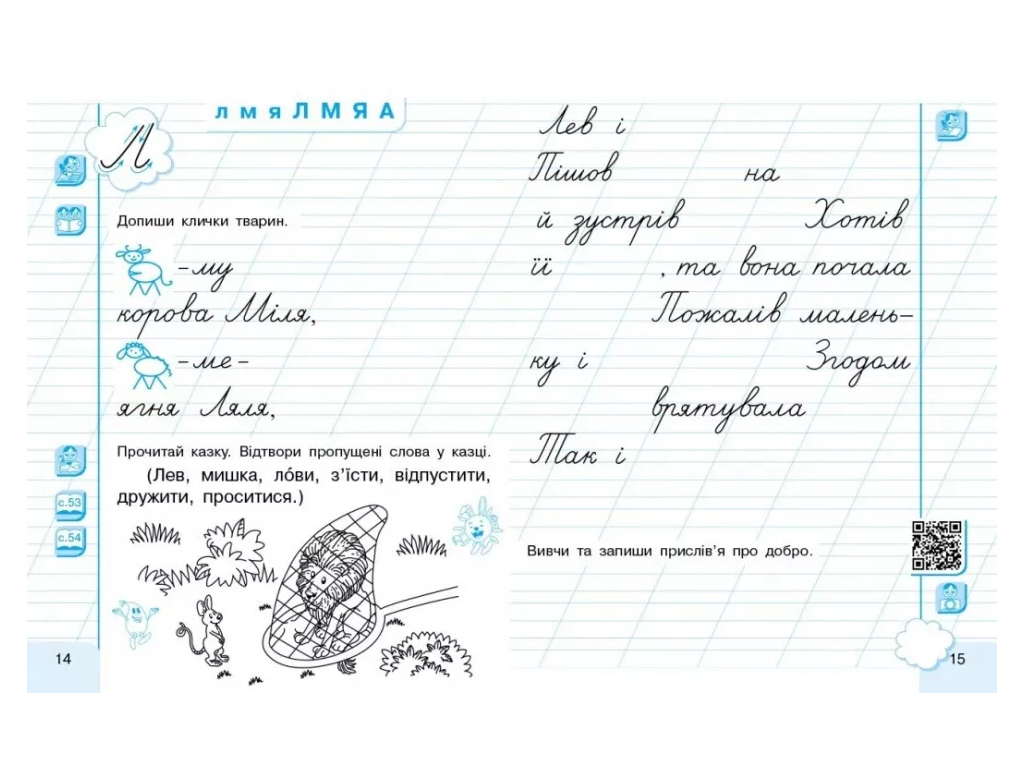 л м я Л М Я А
Л
Допиши клички тварин.
– му
корова Міля,
– ме –
ягня Ляля,
Прочитай казку. Відтвори пропущені слова у казці.
(Лев, мишка, ло́ви, з’їсти, відпустити,
дружити, проситися.)
с.53
с.54
14
Лев і
Пішов на
й зустрів Хотів
її , та вона почала
Пожалів малень–
ку і Згодом
врятувала
Так і
Вивчи та запиши прислів’я про добро.
15